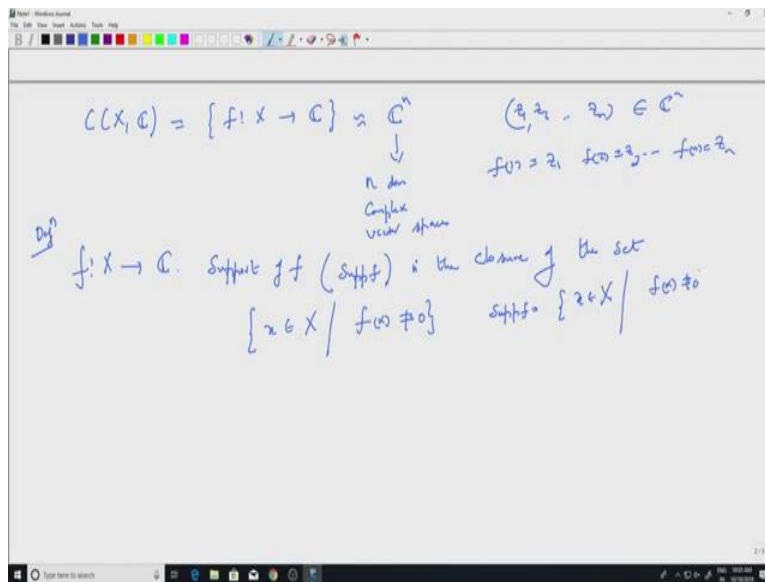 Note1 - Windows Journal
File Edit View Insert Actions Tools Help
C(X, ℂ) = { f: X → ℂ } ≈ ℂⁿ
(z₁, z₂ .. zₙ) ∈ ℂⁿ
f(1) = z₁ f(2) = z₂ --- f(n) = zₙ
n dim
Complex
vector space
Defⁿ
f: X → ℂ. Support of f (Supp f) is the closure of the set
{ x ∈ X | f(x) ≠ 0 } Supp f = { x ∈ X | f(x) ≠ 0
Type here to search